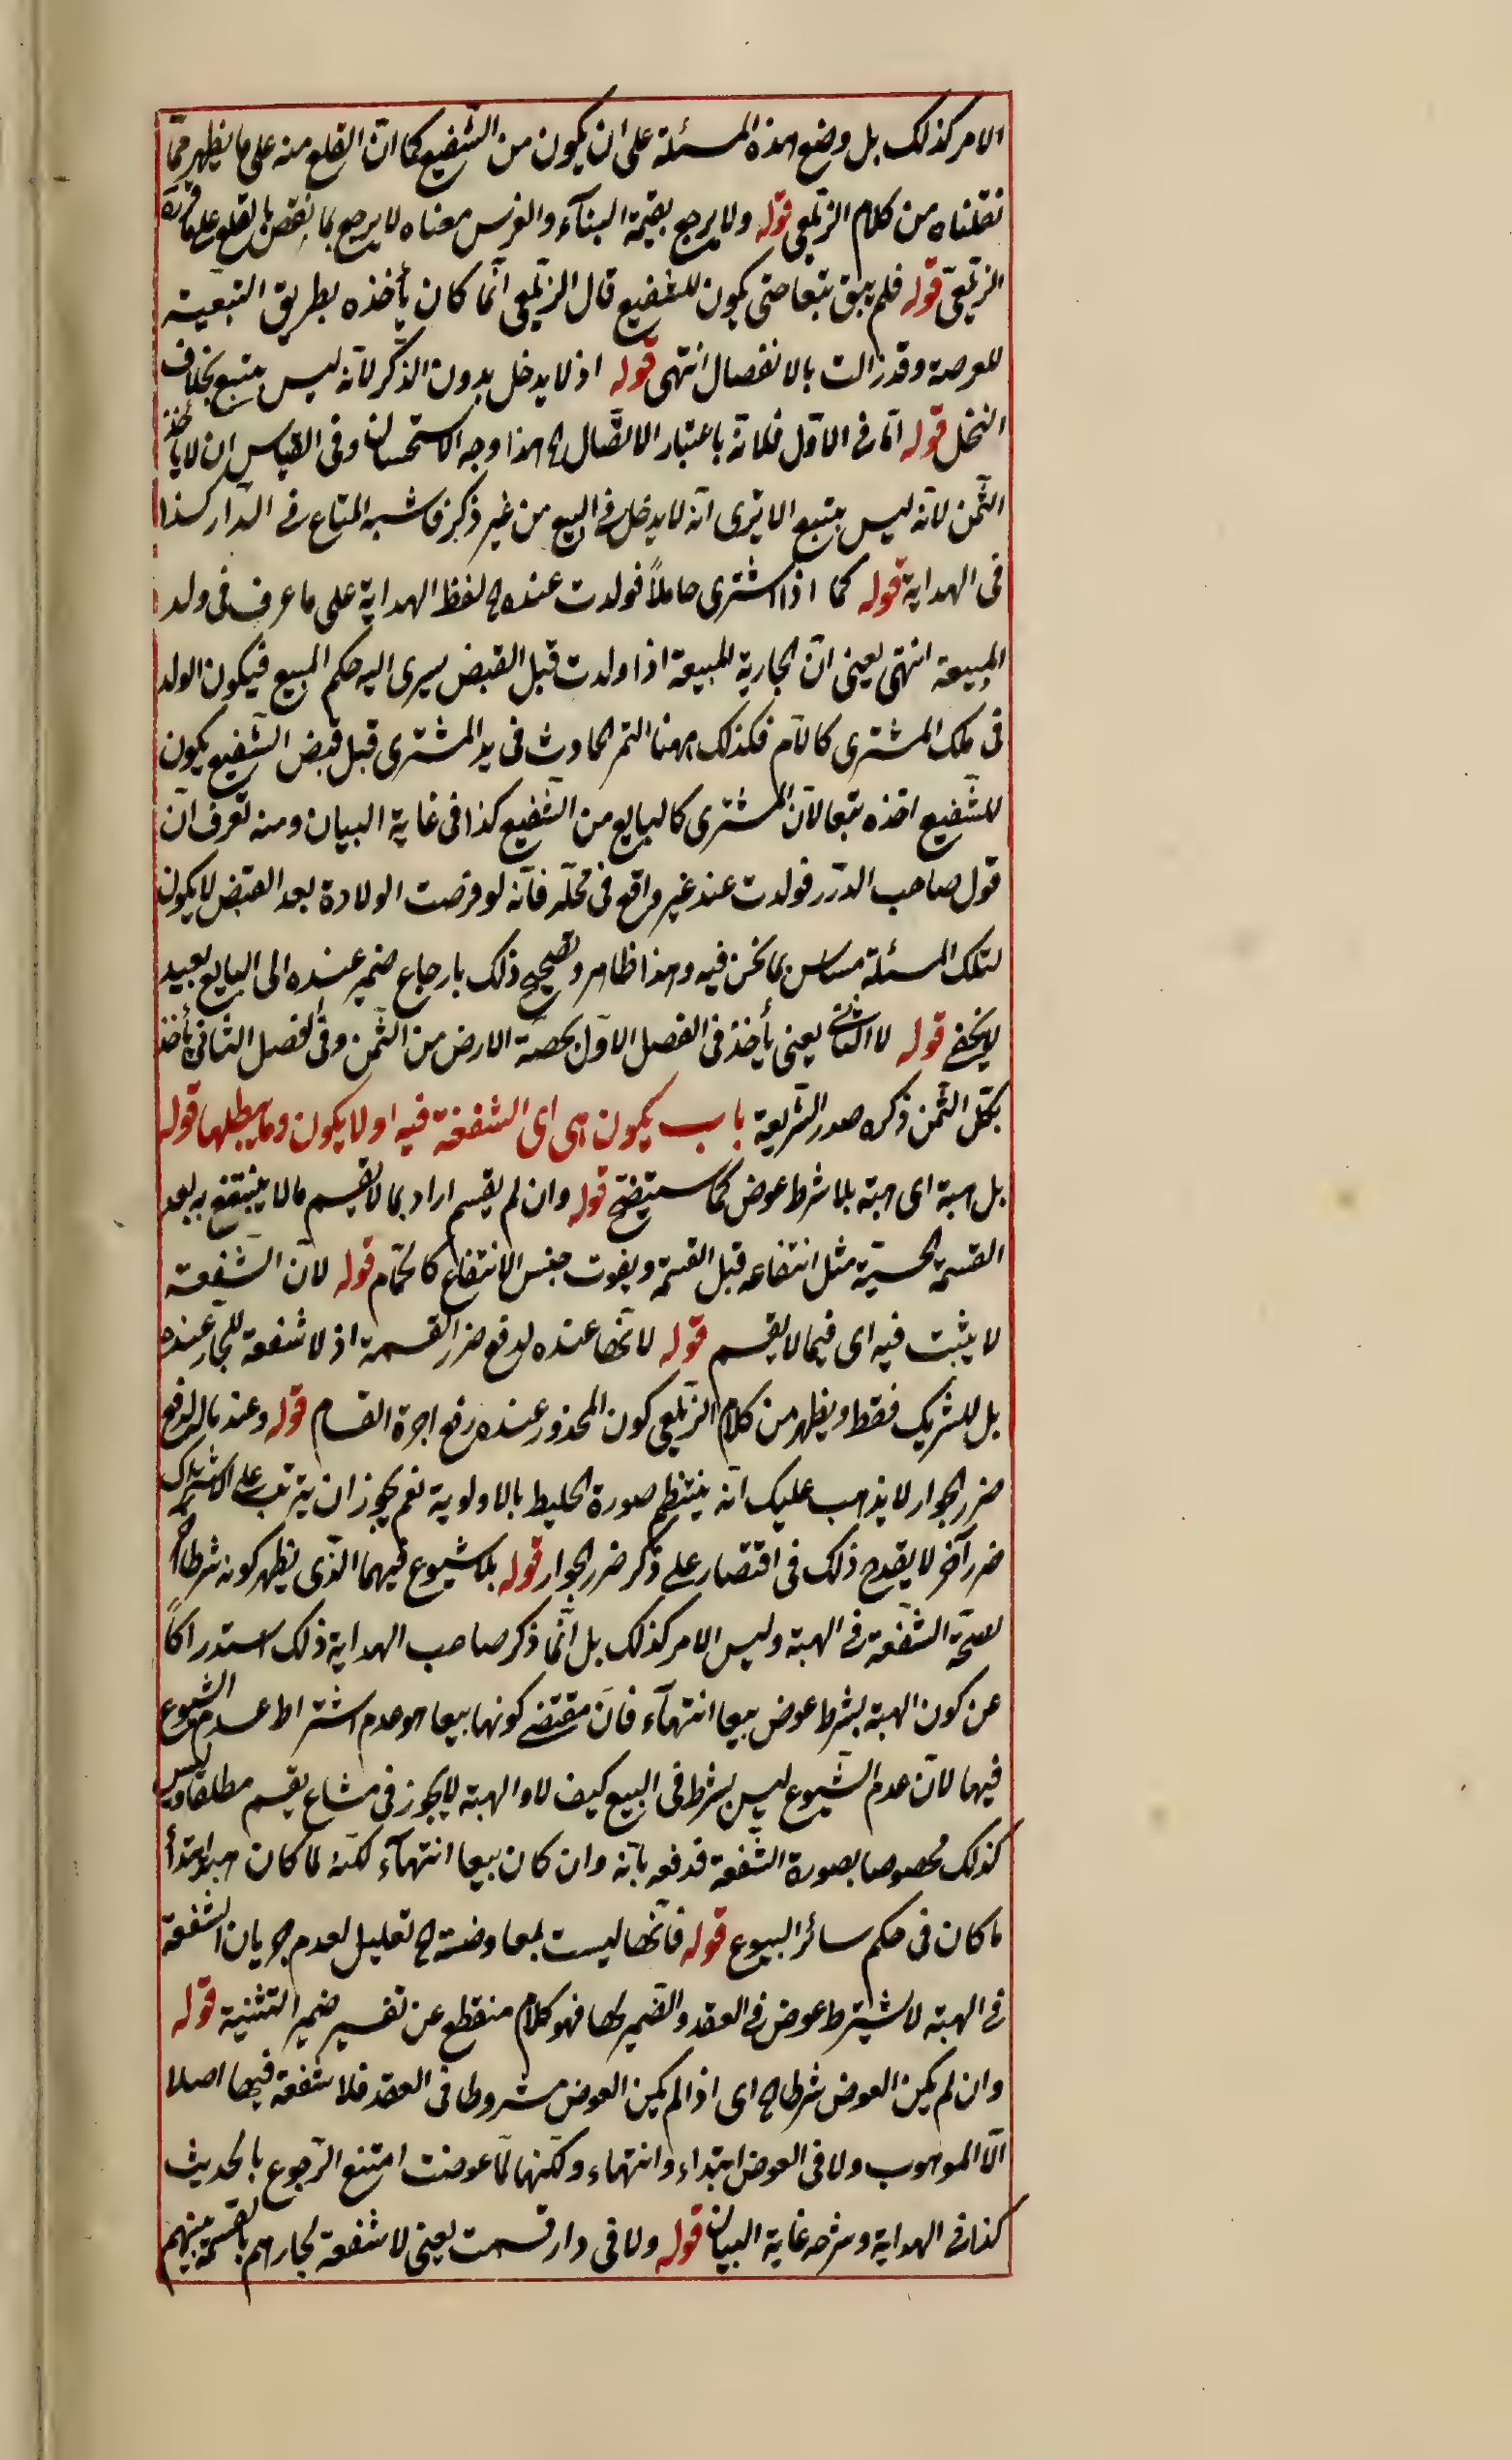 الامر كذلك بل وضع هذه المسئلة على ان يكون من الشفيع كما ان القلع منه على ما يظهر ممّا
نقلناه من كلام الزيلعي قوله ولا يرجع بقيمة البنآء والغرس معناه لا يرجع بما نقص بالقلع على ما قرّره
الزيلعيّ قوله فلم يبق تبعا حتى يكون للشفيع قال الزيلعي انّما كان يأخذه بطريق التبعيّة
للعرصة وقد زالت بالانفصال انتهى قوله اذ لا يدخل بدون الذّكر لانّه ليس بتبع بخلاف
النخل قوله امّا فى الاوّل فلانّه باعتبار الاتّصال الخ هذا وجه الاستحسان وفى القياس ان لا يأخذ
الثّمن لانّه ليس بتبع الا يرى انّه لا يدخل فى البيع من غير ذكر فاشبه المتاع فى الدّار كذا
فى الهداية قوله كما اذا اشترى حاملاً فولدت عنده الخ لفظ الهداية على ما عرف فى ولد
المبيعة انتهى يعنى انّ الجارية المبيعة اذا ولدت قبل القبض يسرى اليه حكم المبيع فيكون الولد
فى ملك المشترى كالامّ فكذلك ههنا الثمر الحادث فى يد المشترى قبل قبض الشّفيع يكون
للشّفيع اخذه تبعا لانّ المشترى كالبايع من الشّفيع كذا فى غاية البيان ومنه تعرف انّ
قول صاحب الدّرر فولدت عند غير واقع فى محلّه فانّه لو فرضت الولادة بعد القبض لا يكون
لتلك المسئلة مساس بما نحن فيه وهذا ظاهر وتصحيح ذلك بارجاع ضمير عنده الى البايع بعيد
لا يخفى قوله لا الثانى يعنى يأخذ فى الفصل الاوّل بحصّة الارض من الثّمن وفى الفصل الثانى يأخذ
بكلّ الثّمن ذكره صدر الشّريعة باب يكون هى اى الشفعة فيه او لا يكون وما يبطلها قوله
بل هبة اى هبة بلا شرط عوض كما سيتضح قوله وان لم يقسم اراد بما لا يقسم ما لا ينتفع به بعد
القسمة الحسيّة مثل انتفاعه قبل القسمة ويفوت جنس الانتفاع كالحمّام قوله لانّ الشّفعة
لا يثبت فيه اى فيما لا يقسم قوله لانّها عنده لدفع ضرر القسمة اذ لا شفعة للجار عنده
بل للشريك فقط ويظهر من كلام الزّيلعي كون المحذور عنده رفع اجرة القسام قوله وعندنا لدفع
ضرر الجوار لا يذهب عليك انّه ينتظم صورة الخليط بالاولوية نعم يجوز ان يترتب على الاشتراك
ضرر آخر لا يقدح ذلك فى اقتصار على ذكر ضرر الجوار قوله بلا شيوع فيهما الّذى يظهر كونه شرطا الخ
لصحّة الشّفعة فى الهبة وليس الامر كذلك بل انّما ذكر صاحب الهداية ذلك استدراكاً
عن كون الهبة بشرط عوض بيعا انتهآء فانّ مقتضى كونها بيعا هو عدم اشتراط عدم الشيوع
فيها لانّ عدم الشّيوع ليس بشرط فى البيع كيف لا والهبة لا يجوز فى مشاع يقسم مطلقا وليس
كذلك مخصوصا بصورة الشّفعة فدفعه بانّه وان كان بيعا انتهآء لكنّه لما كان هبة ابتدأ
ما كان فى حكم سائر البيوع قوله فانّها ليست بمعاوضة الخ تعليل لعدم جريان الشّفعة
فى الهبة لا يشترط عوض فى العقد والضّمير لها فهو كلام منقطع عن تفسير ضمير التثنية قوله
وان لم يكن العوض شرطا الخ اى اذا لم يكن العوض مشروطا فى العقد فلا شفعة فيها اصلا
الّا الموهوب ولا فى العوض ابتداء وانتهاء ولكنّها لمّا عوضت امتنع الرّجوع بالحديث
كذا فى الهداية وشرحه غاية البيان قوله ولا فى دار قسمت يعنى لا شفعة لجارهم بالقسمة بينهم